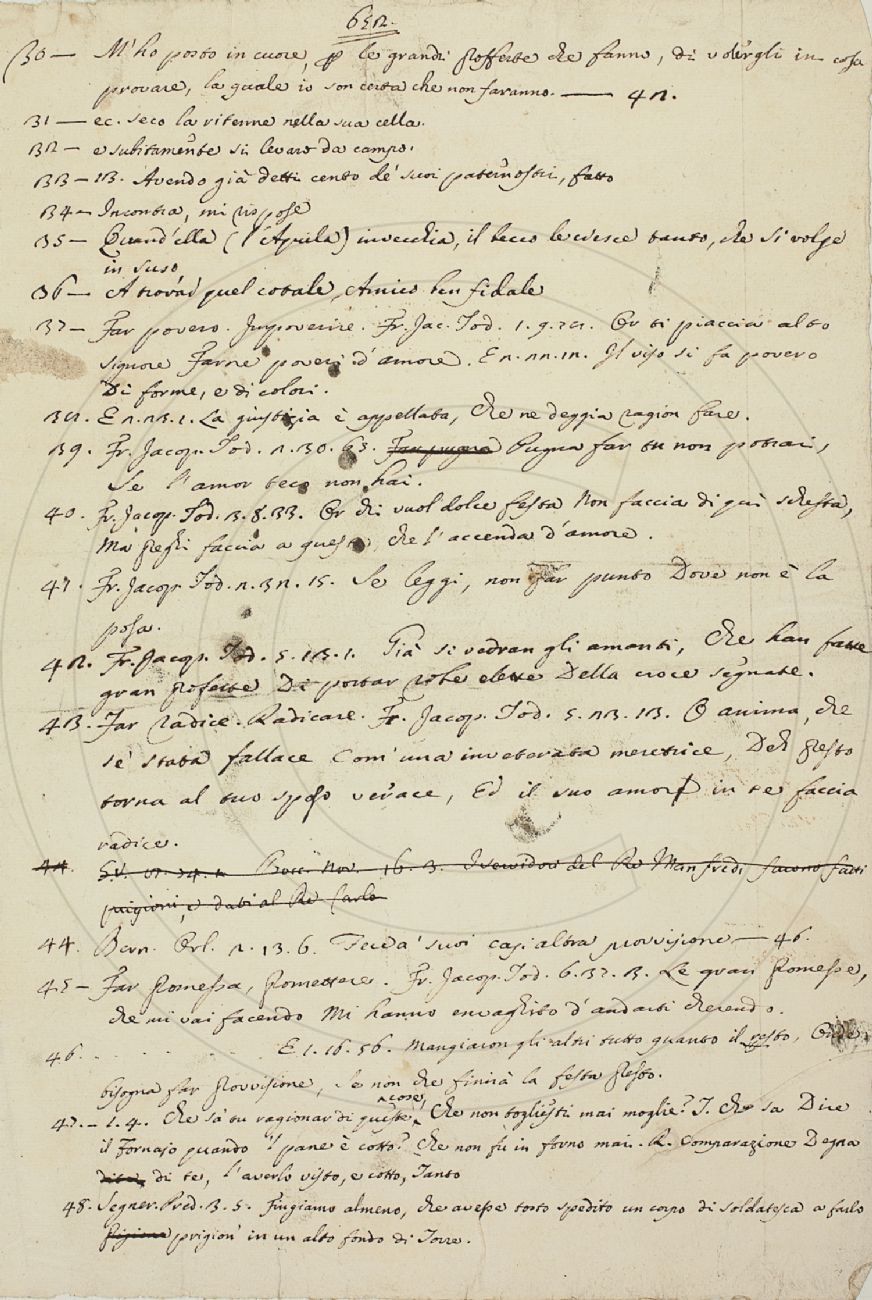 652.
(30 — M'ho posto in cuore, p le grandi profferte che fanno, di volergli in cosa
provare, la quale io son certa che non faranno. — 42.
31 — ec. seco la ritenne nella sua cella.
32 — e subitamente si levaro da campo.
33 — 13. Avendo già detti cento de' suoi paternostri, fatto
34 — Incontra, mi rispose
35 — Quand'ella (l'Aquila) invecchia, il becco le cresce tanto, che si volge
in suso
36 — A trovar quel cotale, Amico ben fidale
37 — Far povero. Impoverire. Fr. Jac. Tod. 1. 9. 28. Or ti piaccia alto
signore Farne poveri d'amore. E 2. 22. 12. Il viso si fa povero
Di forme, e di colori.
38. E 2. 23. 1. La giustizia è appellata, Che ne deggia ragion fare.
39. Fr. Jacop. Tod. 2. 30. 65. Far pugna Pugna far tu non potrai,
Se l'amor teco non hai.
40. Fr. Jacop. Tod. 3. 8. 33. Or chi vuol dolce festa Non faccia di qui chesta,
Ma preghi faccia a questo, che l'accenda d'amore.
41. Fr. Jacop. Tod. 2. 32. 15. Se leggi, non far punto Dove non è la
posa.
42. Fr. Jacop. Tod. 5. 13. 1. Già si vedran gli amanti, Che han fatte
gran proferte Di portar robe elette Della croce segnate.
43. Far radice. Radicare. Fr. Jacop. Tod. 5. 23. 13. O anima, che
se' stata fallace Com' una inveterata meretrice, Deh presto
torna al tuo sposo verace, Ed il suo amor in te faccia
radice.
44. Bocc. Nov. 16. 3. I servidori del Re Manfredi furono fatti
prigioni, e dati al Re Carlo
44. Bern. Orl. 2. 13. 6. Fece a' suoi casi altra provvisione — 46.
45 — Far promessa, promettere. Fr. Jacop. Tod. 6. 37. 3. Le gran promesse,
che mi vai facendo Mi hanno invaghito d'andarti cherendo.
46. . . . . . . . E 1. 16. 56. Mangiaron gli altri tutto quanto il resto, Onde
bisogna far provvisione, Se non che finirà la festa presto.
cose,
47. — 1. 4. Che sa' tu ragionar di queste Che non togliesti mai moglie? T. Che sa Dire
il Fornajo quando 'l pane è cotto? Che non fu in forno mai. R. Comparazione Degna
di te, l'averlo visto, e cotto, Tanto
48. Segner. Pred. 3. 5. Fingiamo almeno, che avesse tosto spedito un corpo di soldatesca a farlo
prigion' in un alto fondo di Torre.